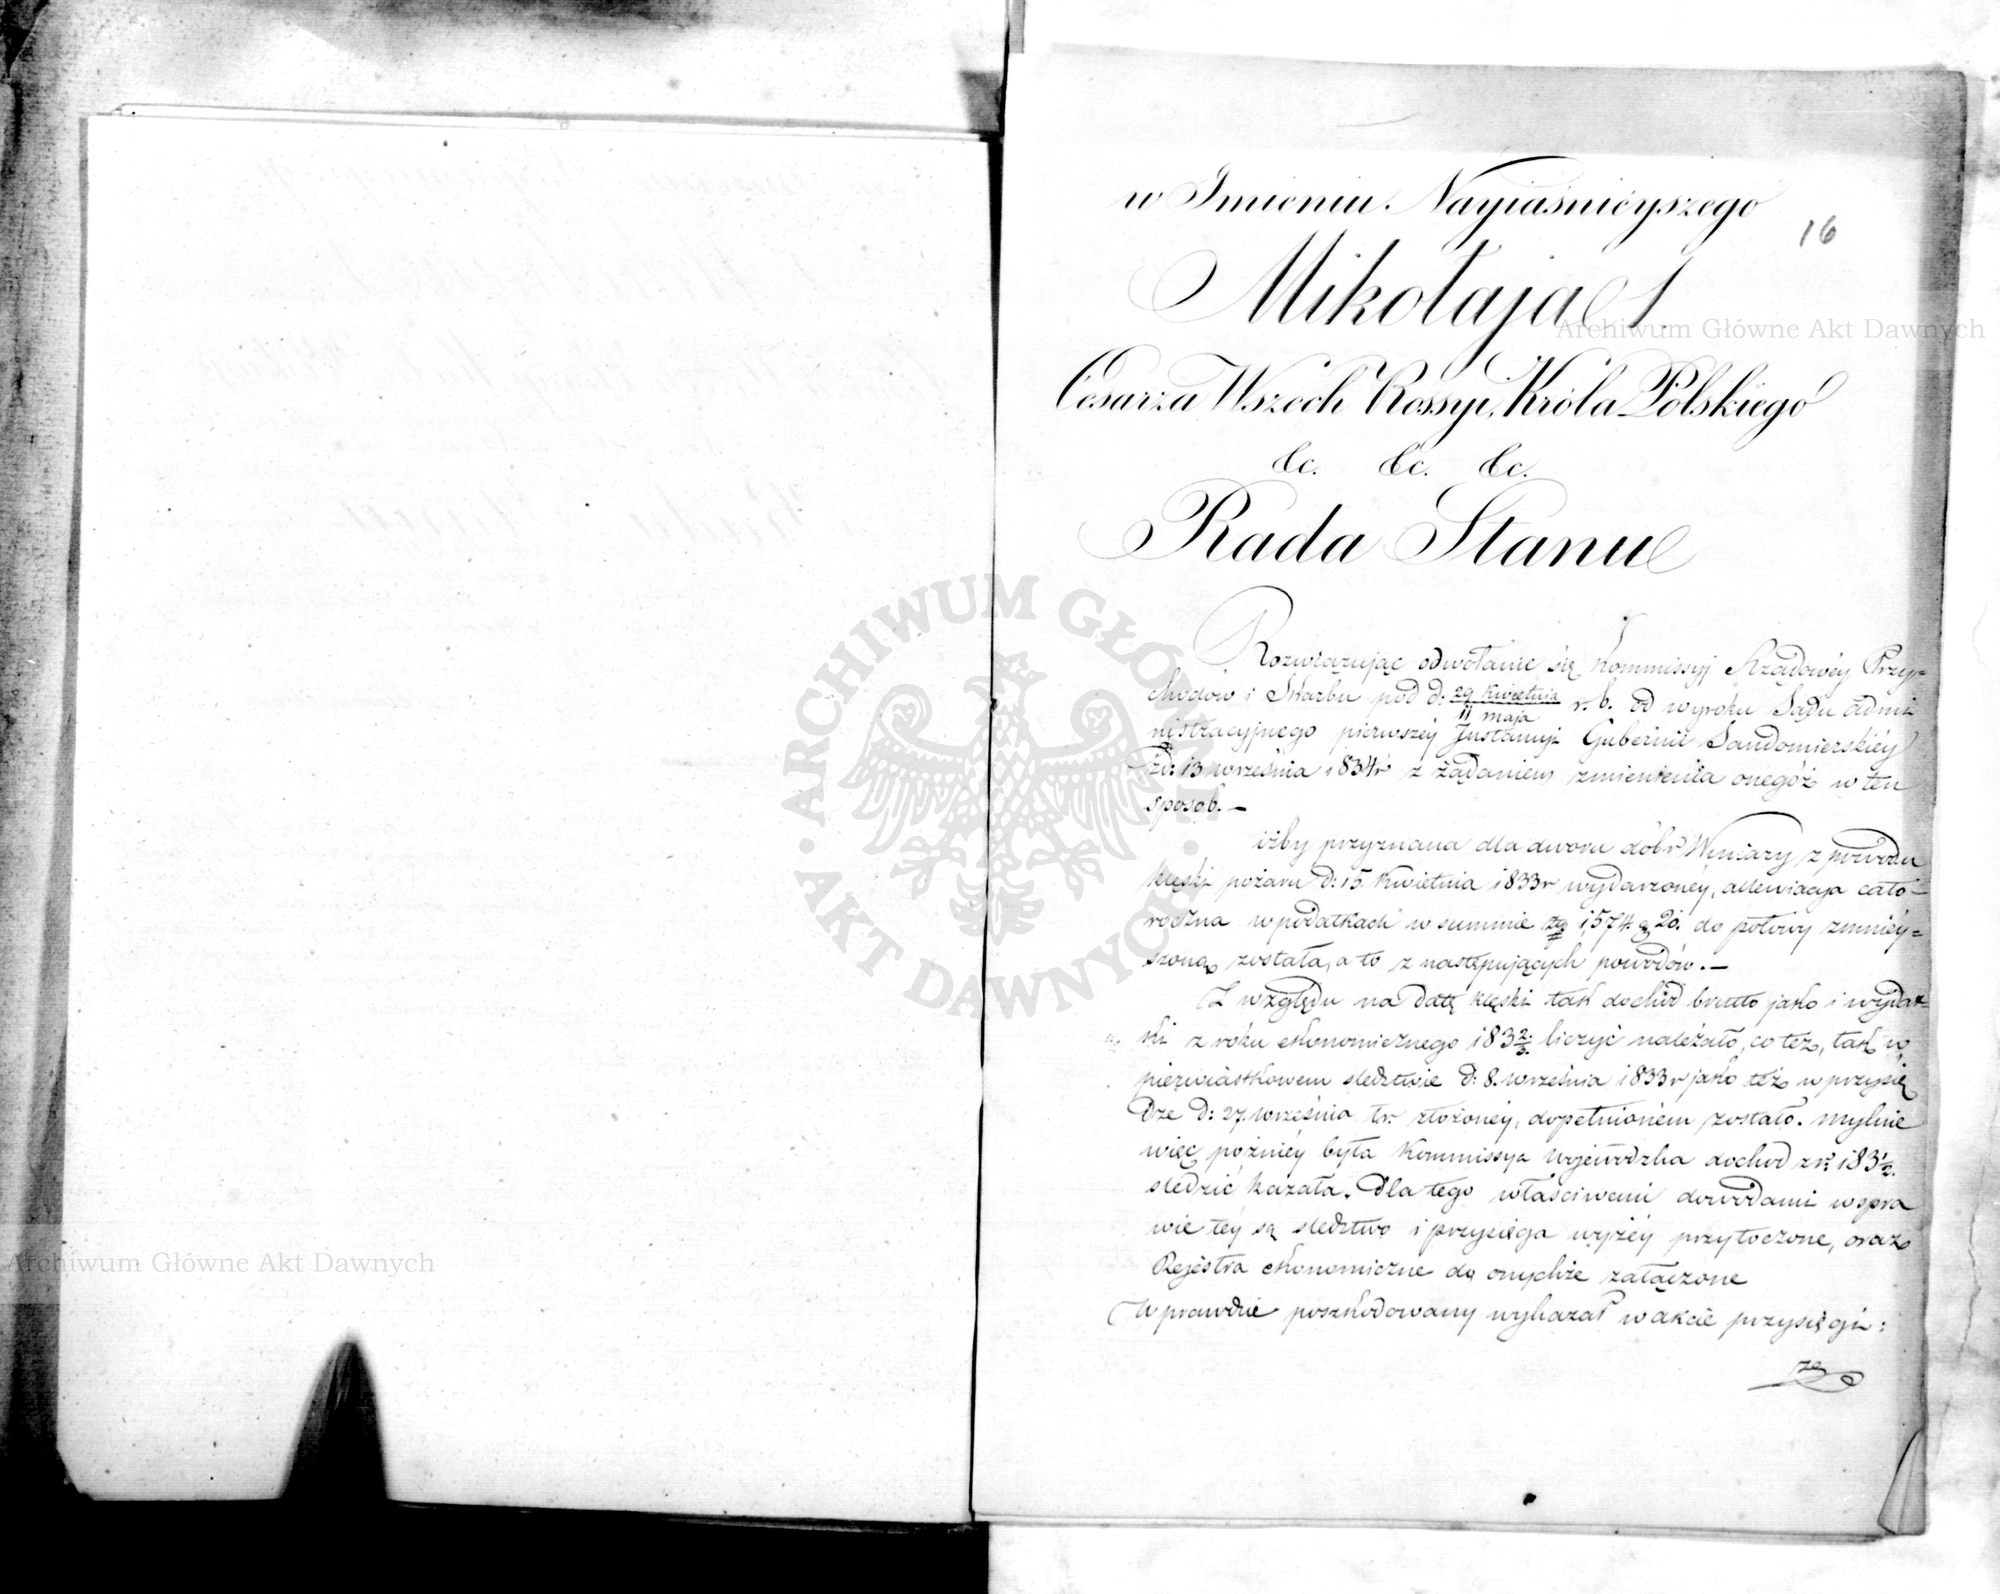 w Imieniu Nayiaśnieyszego
16
Mikołaja 1.
Cesarza Wszech Rossyi, Króla Polskiego
&c. &c. &c.
Rada Stanu
Rozwiązując odwołanie się Kommissyj Rządowéy Przy-
chodów i Skarbu pod d: 29 Kwietnia / 11 maja r. b. od wyroku Sądu Admi
nistracyjnego pierwszéy Instancyi Gubernii Sandomierskiéy
z d: 13 września 1834r z żądaniem zmienienia onegóż w ten
sposób. —
iżby przyznana dla dworu dóbr Winiary z powodu
klęski pożaru d: 15 Kwietnia 1833r wydarzonéy, allewiacya cało-
roczna w podatkach w summie zł 1,574. g 20. do połowy zmniéy=
szoną została, a to z następujących powodów. —
Z względu na datę klęski tak dochód brutto jako i wydat-
ki z roku ekonomicznego 183 2/3. liczyć należało, co też, tak w
pierwiastkowem śledztwie d: 8. września 1833r jako też w przysię
dze d: 27. września t.r. złożonéy, dopełnioném zostało. mylnie
więc późniéy była Kommissya Wojewódzka dochód z r: 183 1/2.
śledzić kazała. Dla tego właściwemi dowodami w spra
wie téy są śledztwo i przysięga wyżéy przytoczone, oraz
Rejestra ekonomiczne do onychże załączone
W prawdzie poszkodowany wykazał w akcie przysięgi:
że
Archiwum Główne Akt Dawnych
Archiwum Główne Akt Dawnych
ARCHIWUM GŁÓWNE AKT DAWNYCH